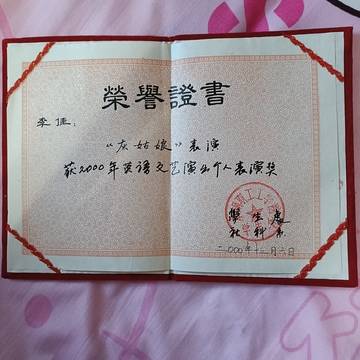 榮譽證書
李佳:
“灰姑娘”表演
获2000年英语文艺演出个人表演奖
學生處
社科系
二000年十二月六日